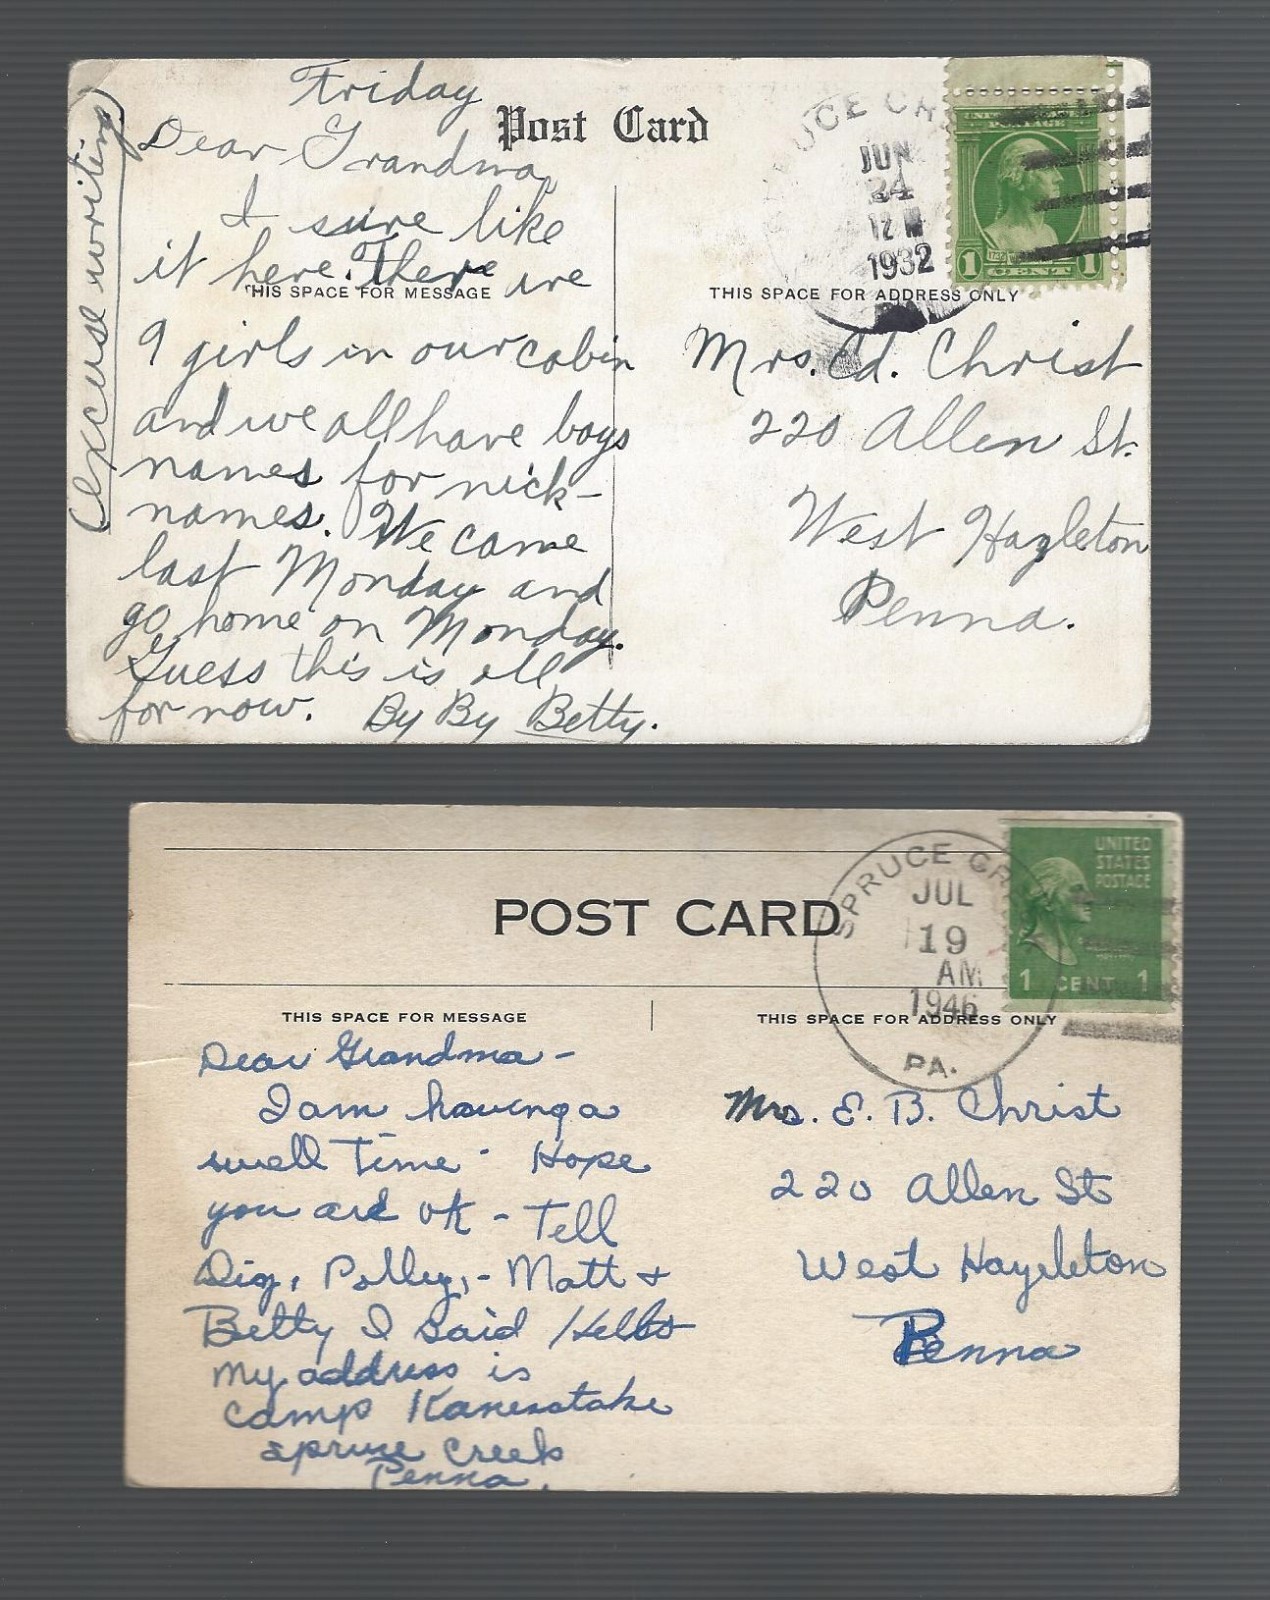 Friday
Post Card
Dear Grandma,
I sure like
it here. There are
THIS SPACE FOR MESSAGE
9 girls in our cabin
and we all have boys
names for nick-
names. We came
last Monday and
go home on Monday.
Guess this is all
for now. By By Betty.
(excuse writing)
SPRUCE CR
JUN
24
12 M
1932
PA.
UNITED STATES
POSTAGE
1 CENT 1
THIS SPACE FOR ADDRESS ONLY
Mrs. Ed. Christ
220 Allen St.
West Hazleton
Penna.
POST CARD
SPRUCE CR
JUL
19
AM
1946
PA.
UNITED
STATES
POSTAGE
1 CENT 1
THIS SPACE FOR MESSAGE
THIS SPACE FOR ADDRESS ONLY
Dear Grandma -
I am having a
swell time - Hope
you are ok - Tell
Polley, - Matt +
Betty I said Hello
My address is
Camp Kanesatake
Spruce Creek
Penna.
Mrs. E. B. Christ
220 Allen St
West Hazleton
Penna